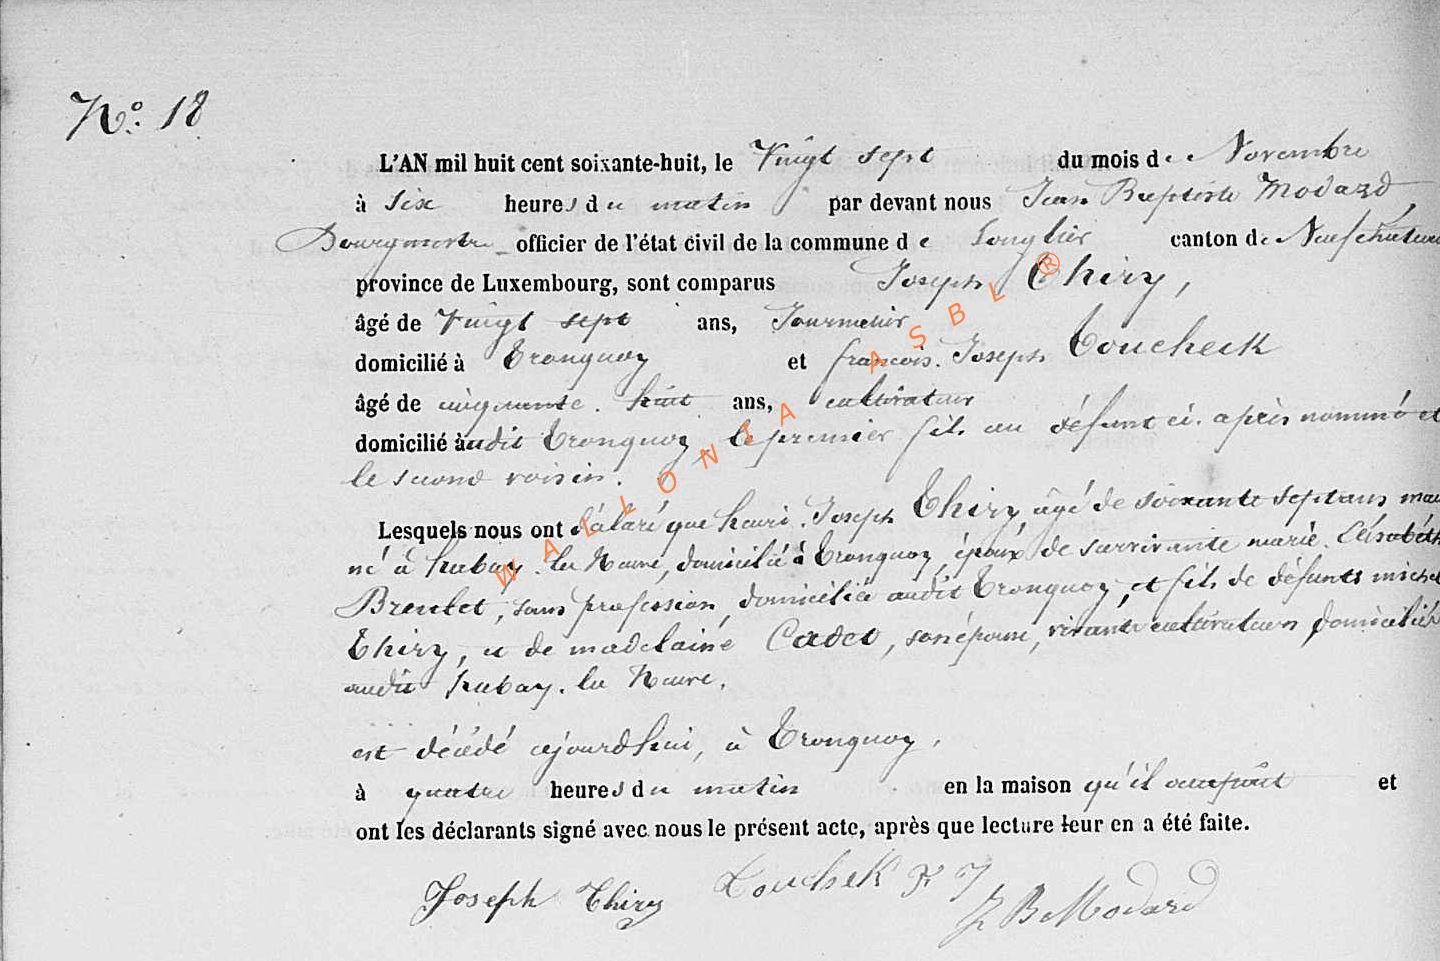 N.º 18
L'AN mil huit cent soixante-huit, le Vingt sept du mois de Novembre
à Six heures du matin par devant nous Jean Baptiste Modard,
Bourgmestre officier de l'état civil de la commune de Longlier canton de Neufchâteau
province de Luxembourg, sont comparus Joseph Thiry,
âgé de Vingt sept ans, Journalier
domicilié à Tronquoy et françois. Joseph Toucheck
âgé de cinquante. huit ans, cultivateur
domicilié audit Tronquoy, le premier fils au défunt ci. après nommé et
le second voisin.
Lesquels nous ont déclaré que henri. Joseph Thiry, âgé de soixante sept ans
né à habay. la Neuve, domicilié à Tronquoy, époux de survivante marie. Elisabeth
Breulet, sans profession, domiciliée audit Tronquoy, et fils de défunts michel
Thiry, et de madelaine Cadet, son épouse, vivants cultivateurs domiciliés
audit habay. la Neuve.
est décédé aujourdhui, à Tronquoy,
à quatre heures du matin en la maison qu'il occupait et
ont les déclarants signé avec nous le présent acte, après que lecture leur en a été faite.
Joseph Thiry Touchek F J
J B Modard
WALLONIA ASBL ®